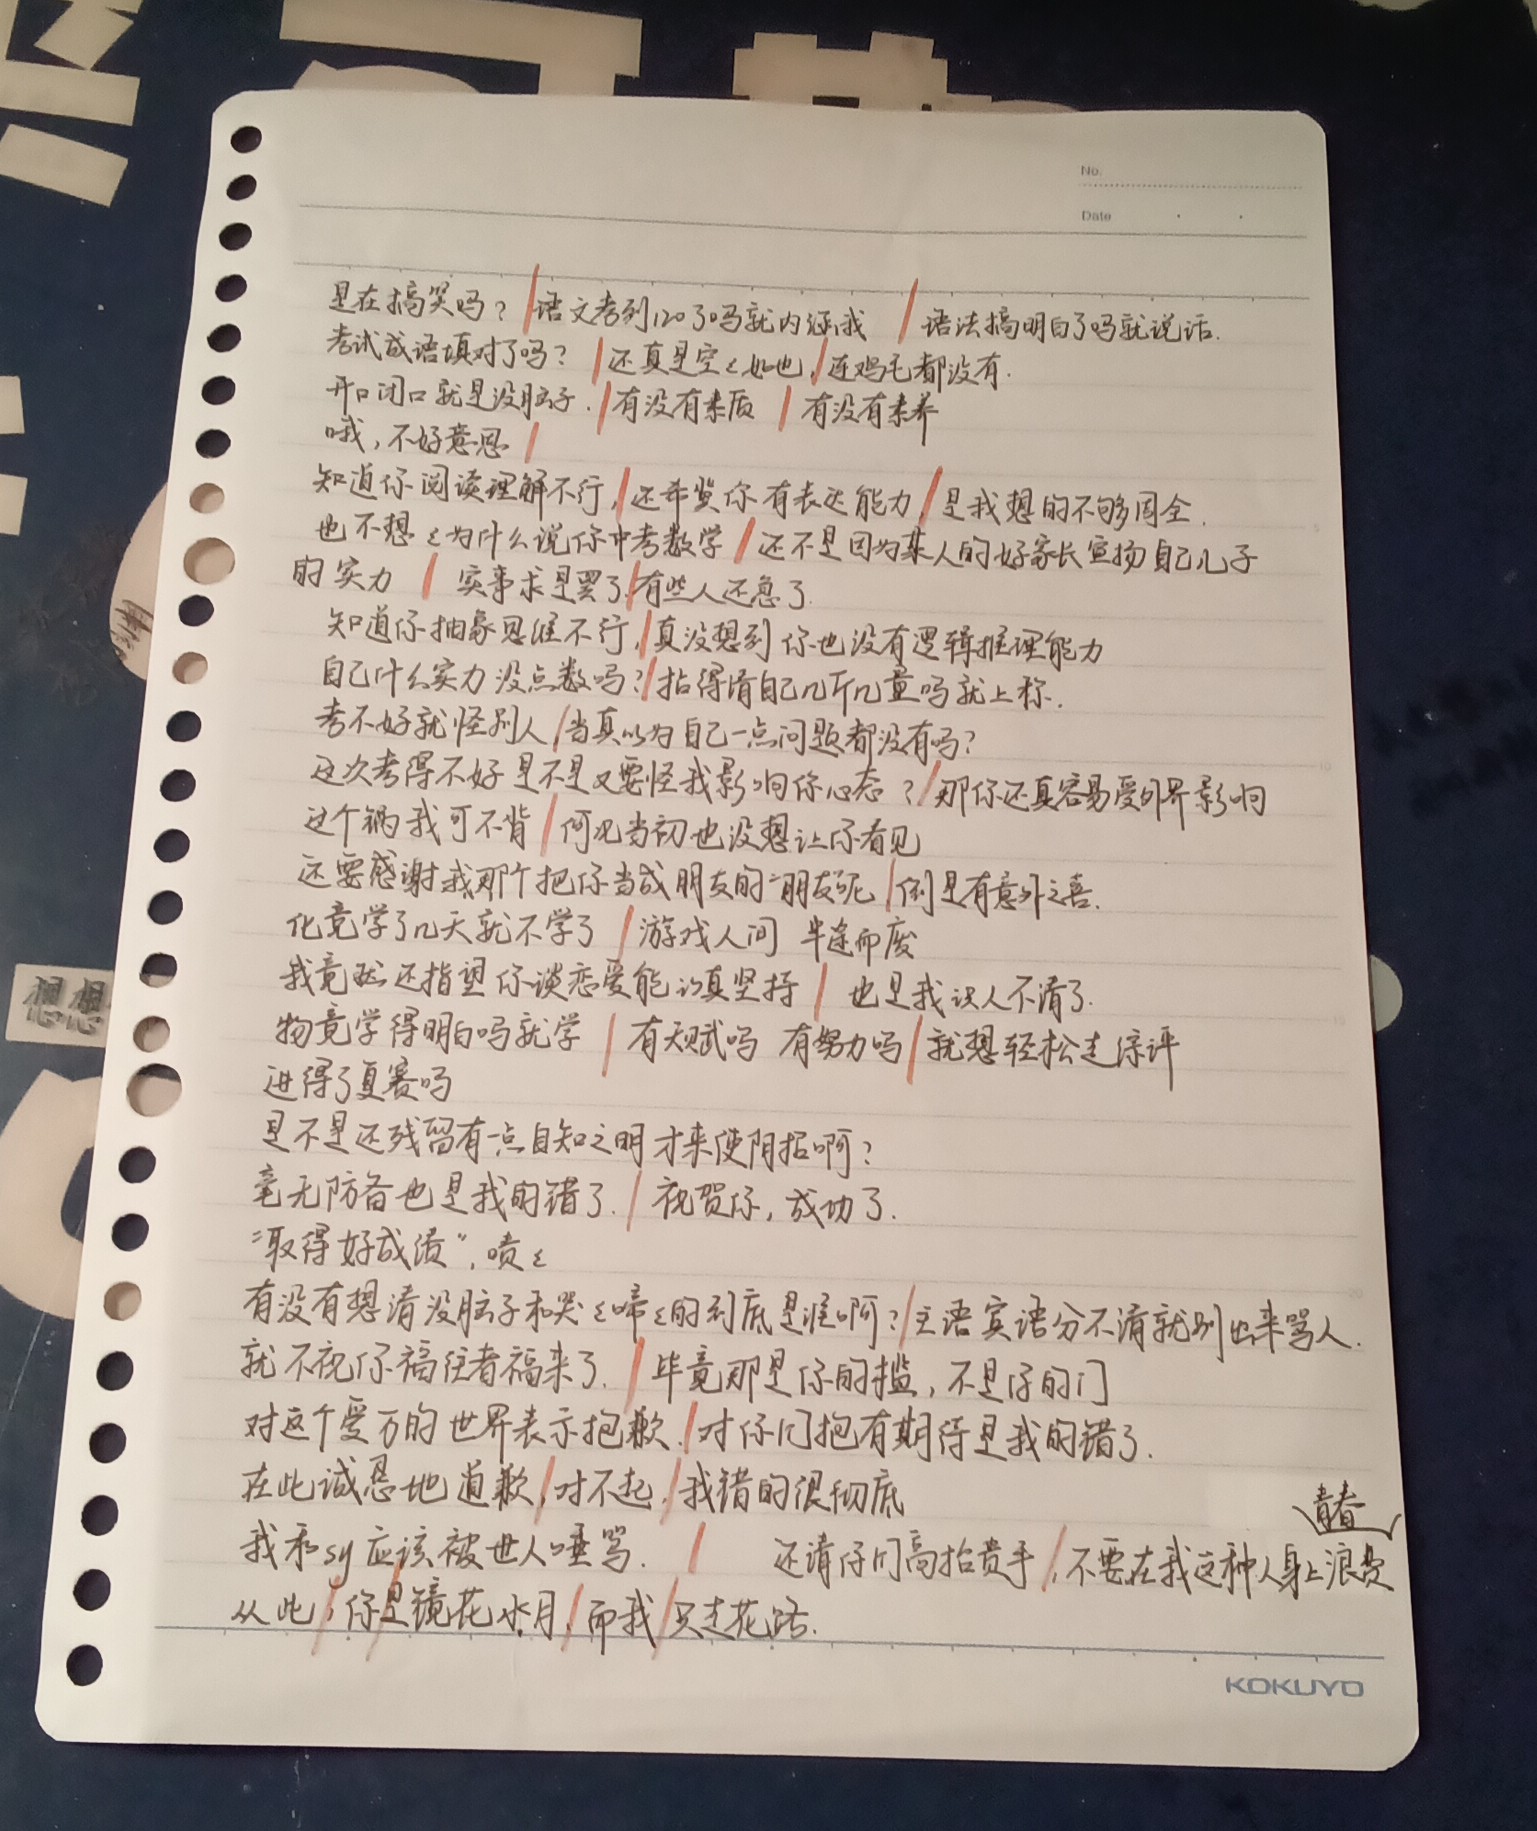 No.
Date
是在搞笑吗？/语文考到120了吗就内涵我 / 语法搞明白了吗就说话.
考试成语填对了吗？/还真是空々如也,/连鸡毛都没有.
开口闭口就是没脑子./有没有素质 / 有没有素养
哦,不好意思/
知道你阅读理解不行,/还希望你有表达能力,/是我想的不够周全.
也不想々为什么说你中考数学/还不是因为某人的好家长宣扬自己儿子
的实力 / 实事求是罢了/有些人还急了.
知道你抽象思维不行,/真没想到你也没有逻辑推理能力
自己什么实力没点数吗?/掂得清自己几斤几量吗就上称.
考不好就怪别人/当真以为自己一点问题都没有吗?
这次考得不好是不是又要怪我影响你心态?/那你还真容易受外界影响
这个锅我可不背/何况当初也没想让你看见
还要感谢我那个把你当成朋友的“朋友”呢/倒是有意外之喜.
化竞学了几天就不学了 /游戏人间 半途而废
我竟然还指望你谈恋爱能认真坚持/ 也是我识人不清了.
物竞学得明白吗就学 / 有天赋吗 有努力吗/就想轻松走综评
进得了复赛吗
是不是还残留有一点自知之明才来使阴招啊?
毫无防备也是我的错了./ 祝贺你,成功了.
“取得好成绩”,啧々
有没有想清没脑子和哭々啼々的到底是谁啊?/主语宾语分不清就别出来骂人.
就不祝你福往者福来了./毕竟那是你的槛,不是你的门
对这个爱万的世界表示抱歉./对你们抱有期待是我的错了.
在此诚恳地道歉/,对不起,/我错的很彻底
青春
我和sy应该被世人唾骂. / 还请你们高抬贵手/,不要在我这种人身上浪费
从此/,你/是镜花水月,/而我/只走花路.
KOKUYO
想想